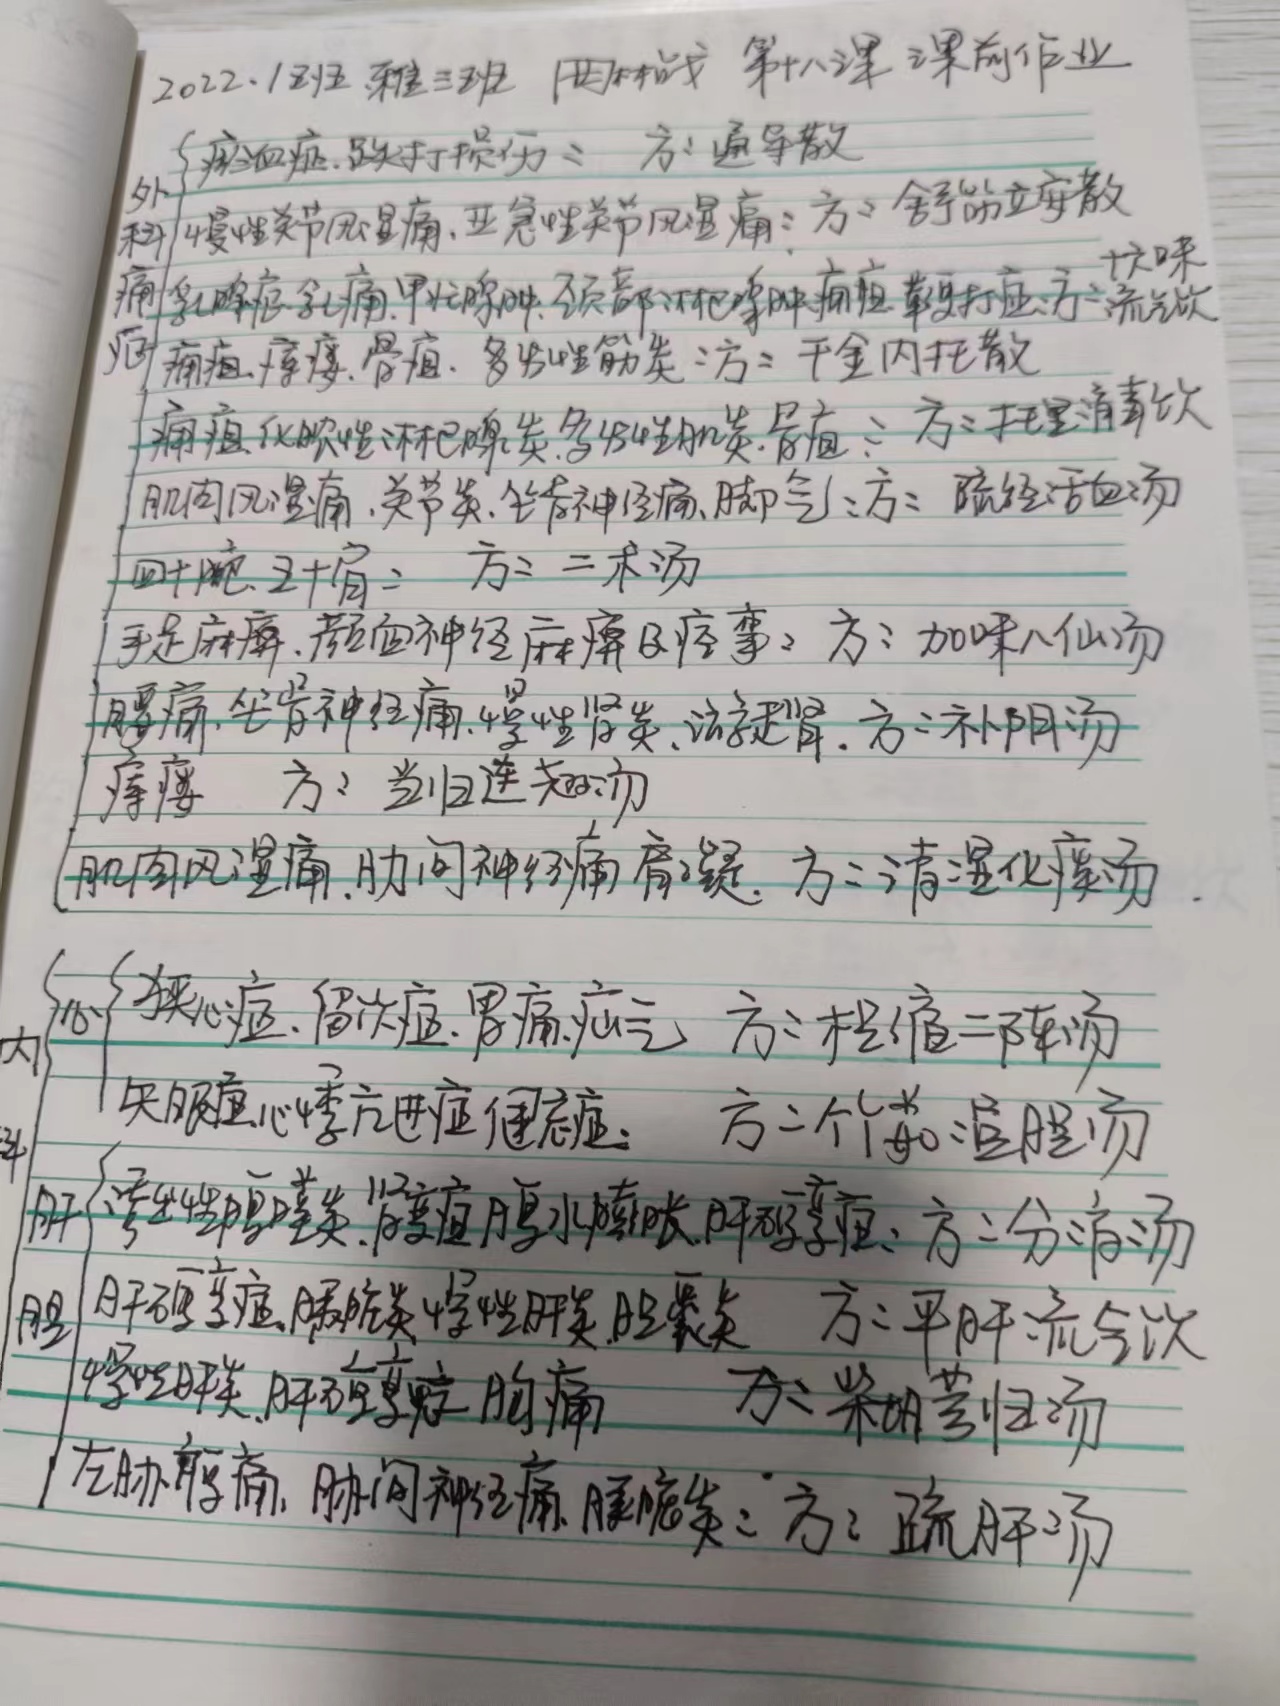 2022.1班 雅三班 第十八课 课前作业
外科痛症
瘀血症、跌打损伤： 方：通导散
慢性关节风湿痛、亚急性关节风湿痛：方：舒筋立安散
乳腺症、乳痛、甲状腺肿、颈部淋杷腺肿、痈疽、方：十六味流气饮
痈疽、瘰疬、骨疽、多发性筋炎：方：千金内托散
痈疽、化脓性淋杷腺炎、多发性肌炎、骨疽：方：托里消毒饮
肌肉风湿痛、关节炎、坐骨神经痛、脚气：方：疏经活血汤
四十腕、五十肩： 方：二术汤
手足麻痹、颜面神经麻痹及痉挛：方：加味八仙汤
腰痛、坐骨神经痛、慢性肾炎、游走肾、方：补阴汤
瘰疬 方：当归连翘汤
肌肉风湿痛、肋间神经痛、肩凝、方：清湿化痰汤
内科
心
狭心症、留饮症、胃痛、疝气 方：枳缩二陈汤
失眠症、心悸亢进症、健忘症： 方：竹茹温胆汤
肝胆
渗出性腹膜炎、腹水膨胀、肝硬变症：方：分消汤
肝硬变症、胰脏炎、慢性肝炎、胆囊炎 方：平肝流气饮
慢性肝炎、肝硬变症、胸痛 方：柴胡芎归汤
左胁痛、肋间神经痛、胰脏炎：方：疏肝汤